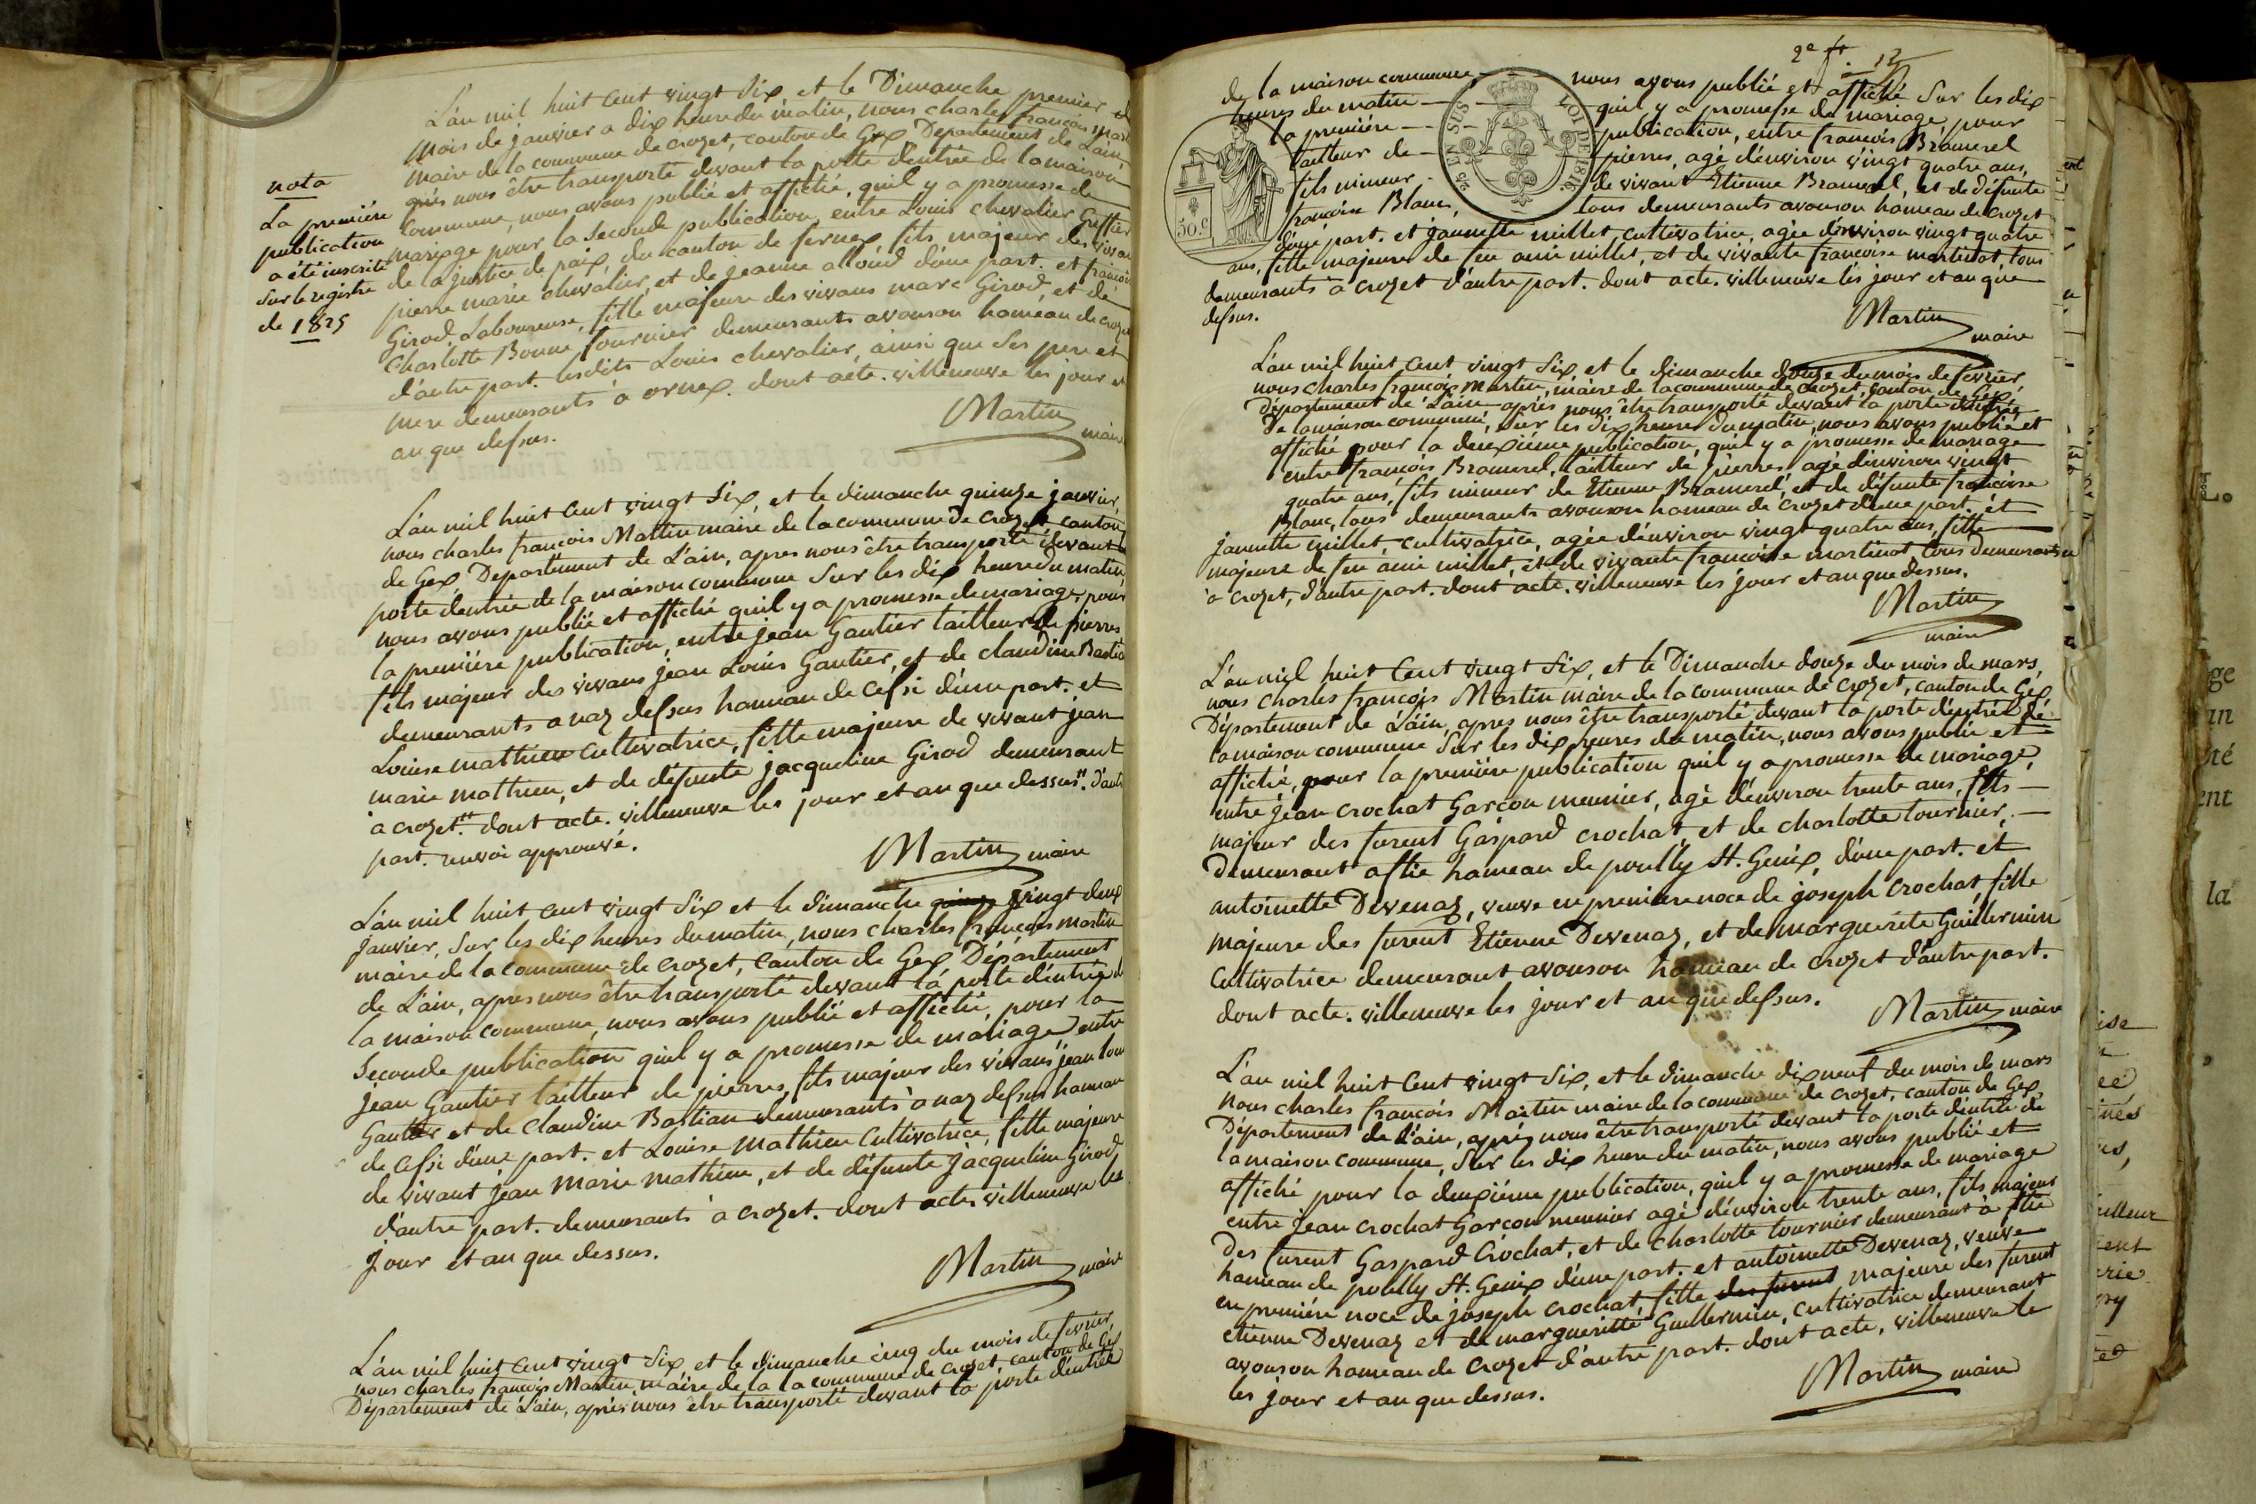 nota
La première
publication
a été inscrite
sur le registre
de 1825
L'an mil huit cent vingt six, et le Dimanche premier
mois de janvier a dix heure du matin, nous charles françois
maire de la commune de crozet, canton de Gex Departement de L'ain,
après nous être transporté devant la porte d'entrée de la maison
commune, nous avons publié et affiché, qu'il y a promesse de
mariage pour la seconde publication, entre Louis chevalier Greffier
de la justice de paix, du canton de fernex, fils majeur des vivans
pierre marie chevalier, et de jeanne d'une part. et françoise
Girod, Laboureuse, fille majeure des vivans marc Girod, et de
Charlotte Bonne fournier demeurants avouson hameau de crozet
d'autre part. lesdits Louis chevalier, ainsi que ses pere et
mere demeurants à ornex. dont acte. villeneuve les jour et
an que dessus.
Martin maire
L'an mil huit cent vingt six, et le dimanche quinze janvier,
nous charles françois Martin maire de la commune de Crozet canton
de Gex, Departement de L'ain, apres nous être transporté devant la
porte d'entrée de la maison commune sur les dix heure du matin,
nous avons publié et affiché qu'il y a promesse de mariage, pour
la première publication, entre jean Gautier tailleur de pierres
fils majeur des vivans jean Louis Gautier, et de claudine Bastian
demeurants a naz dessus hameau de Cessi d'une part. et
Louise mathieu Cultivatrice, fille majeure de vivant jean
marie mathieu, et de défunte jacqueline Girod demeurant
a crozet.tt dont acte. villeneuve les jour et an que dessus.tt d'autre
part. renvoi approuvé.
Martin maire
L'an mil huit cent vingt six et le dimanche quinze vingt deux
janvier, sur les dix heures du matin, nous charles françois martin
maire de la commune de crozet, canton de Gex Département
de L'ain, apres nous être transporté devant la porte d'entrée de
la maison commune, nous avons publié et affiché, pour la
Seconde publication qu'il y a promesse de mariage entre
jean Gautier tailleur de pierres, fils majeur des vivans jean Louis
Gautier et de Claudine Bastian demeurants à naz dessus hameau
de Cessi d'une part. et Louise Mathieu Cultivatrice, fille majeure
de vivant jean Marie mathieu, et de défunte Jacqueline Girod,
d'autre part. demeurants à crozet. dont acte villeneuve les
jour et an que dessus.
Martin maire
L'an mil huit cent vingt six, et le dimanche cinq du mois de fevrier,
nous charles françois Martin, maire de la la commune de Crozet, canton de Gex
Departement de L'ain, après nous être transporté devant la porte d'entrée
2e ft
12
de la maison commune nous avons publié et affiché sur les dix
heures du matin qu'il y a promesse de mariage pour
la première publication, entre françois Bramerel
tailleur de pierres, agé d'environ vingt quatre ans,
fils mineur de vivant Etienne Bramerel, et de défunte
françoise Blanc, tous demeurants avouson hameau de Crozet
d'une part. et jannette millet cultivatrice, agée d'environ vingt quatre
ans, fille majeure de feu aimé millet, et de vivante françoise martinot, tous
demeurants à crozet d'autre part. dont acte. villeneuve les jour et an que
dessus.
50.C
25 EN SUS
LOI DE 1816.
Martin maire
L'an mil huit cent vingt six, et le dimanche douze du mois de fevrier,
nous charles françois martin, maire de la commune de crozet, canton de Gex,
Département de L'ain après nous être transporté devant la porte d'entrée
de la maison commune, sur les dix heures du matin, nous avons publié et
affiché pour la deuxième publication, qu'il y a promesse de mariage
entre françois Bramerel, tailleur de pierres agé d'environ vingt
quatre ans, fils mineur de Etienne Bramerel et de défunte françoise
Blanc, tous demeurants avouson hameau de crozet d'une part. et
jannette millet, cultivatrice, agée d'environ vingt quatre ans, fille
majeure de feu aimé millet, et de vivante françoise martinot, tous demeurants
à crozet, d'autre part. dont acte. villeneuve les jour et an que dessus.
Martin
maire
L'an mil huit cent vingt six, et le Dimanche douze du mois de mars,
nous charles françois Martin maire de la commune de crozet, canton de Gex
Département de L'ain, apres nous être transporté devant la porte d'entrée de
la maison commune sur les dix heures du matin, nous avons publié et
affiché, pour la première publication qu'il y a promesse de mariage,
entre jean crochat Garçon meunier, agé d'environ trente ans, fils
majeur des furent Gaspard crochat, et de charlotte tournier,
demeurant a flie hameau de pouilly St. Genix, d'une part. et
antoinette Devenaz, veuve en première noce de joseph Crochat, fille
majeure des furent Etienne Devenaz, et de marguerite Guillermin
Cultivatrice demeurant avouson hameau de crozet d'autre part.
dont acte. villeneuve les jour et an que dessus.
Martin maire
L'an mil huit cent vingt six, et le dimanche dix neuf du mois de mars
nous charles françois Martin maire de la commune de crozet, canton de Gex,
Departement de L'ain, après nous être transporté devant la porte d'entrée de
la maison commune, sur les dix heure du matin, nous avons publié et
affiché pour la deuxième publication, qu'il y a promesse de mariage
entre jean crochat Garçon meunier agé d'environ trente ans, fils majeur
des furent Gaspard Crochat, et de charlotte tournier demeurant à flie
hameau de pouilly St. Genix d'une part. et antoinette Devenaz, veuve
en première noce de joseph crochat, fille des furent majeure des furent
etienne Devenaz et de margueritte Guillermin, cultivatrice demeurant
avouson hameau de crozet d'autre part. dont acte, villeneuve le
les jour et an que dessus.
Martin maire